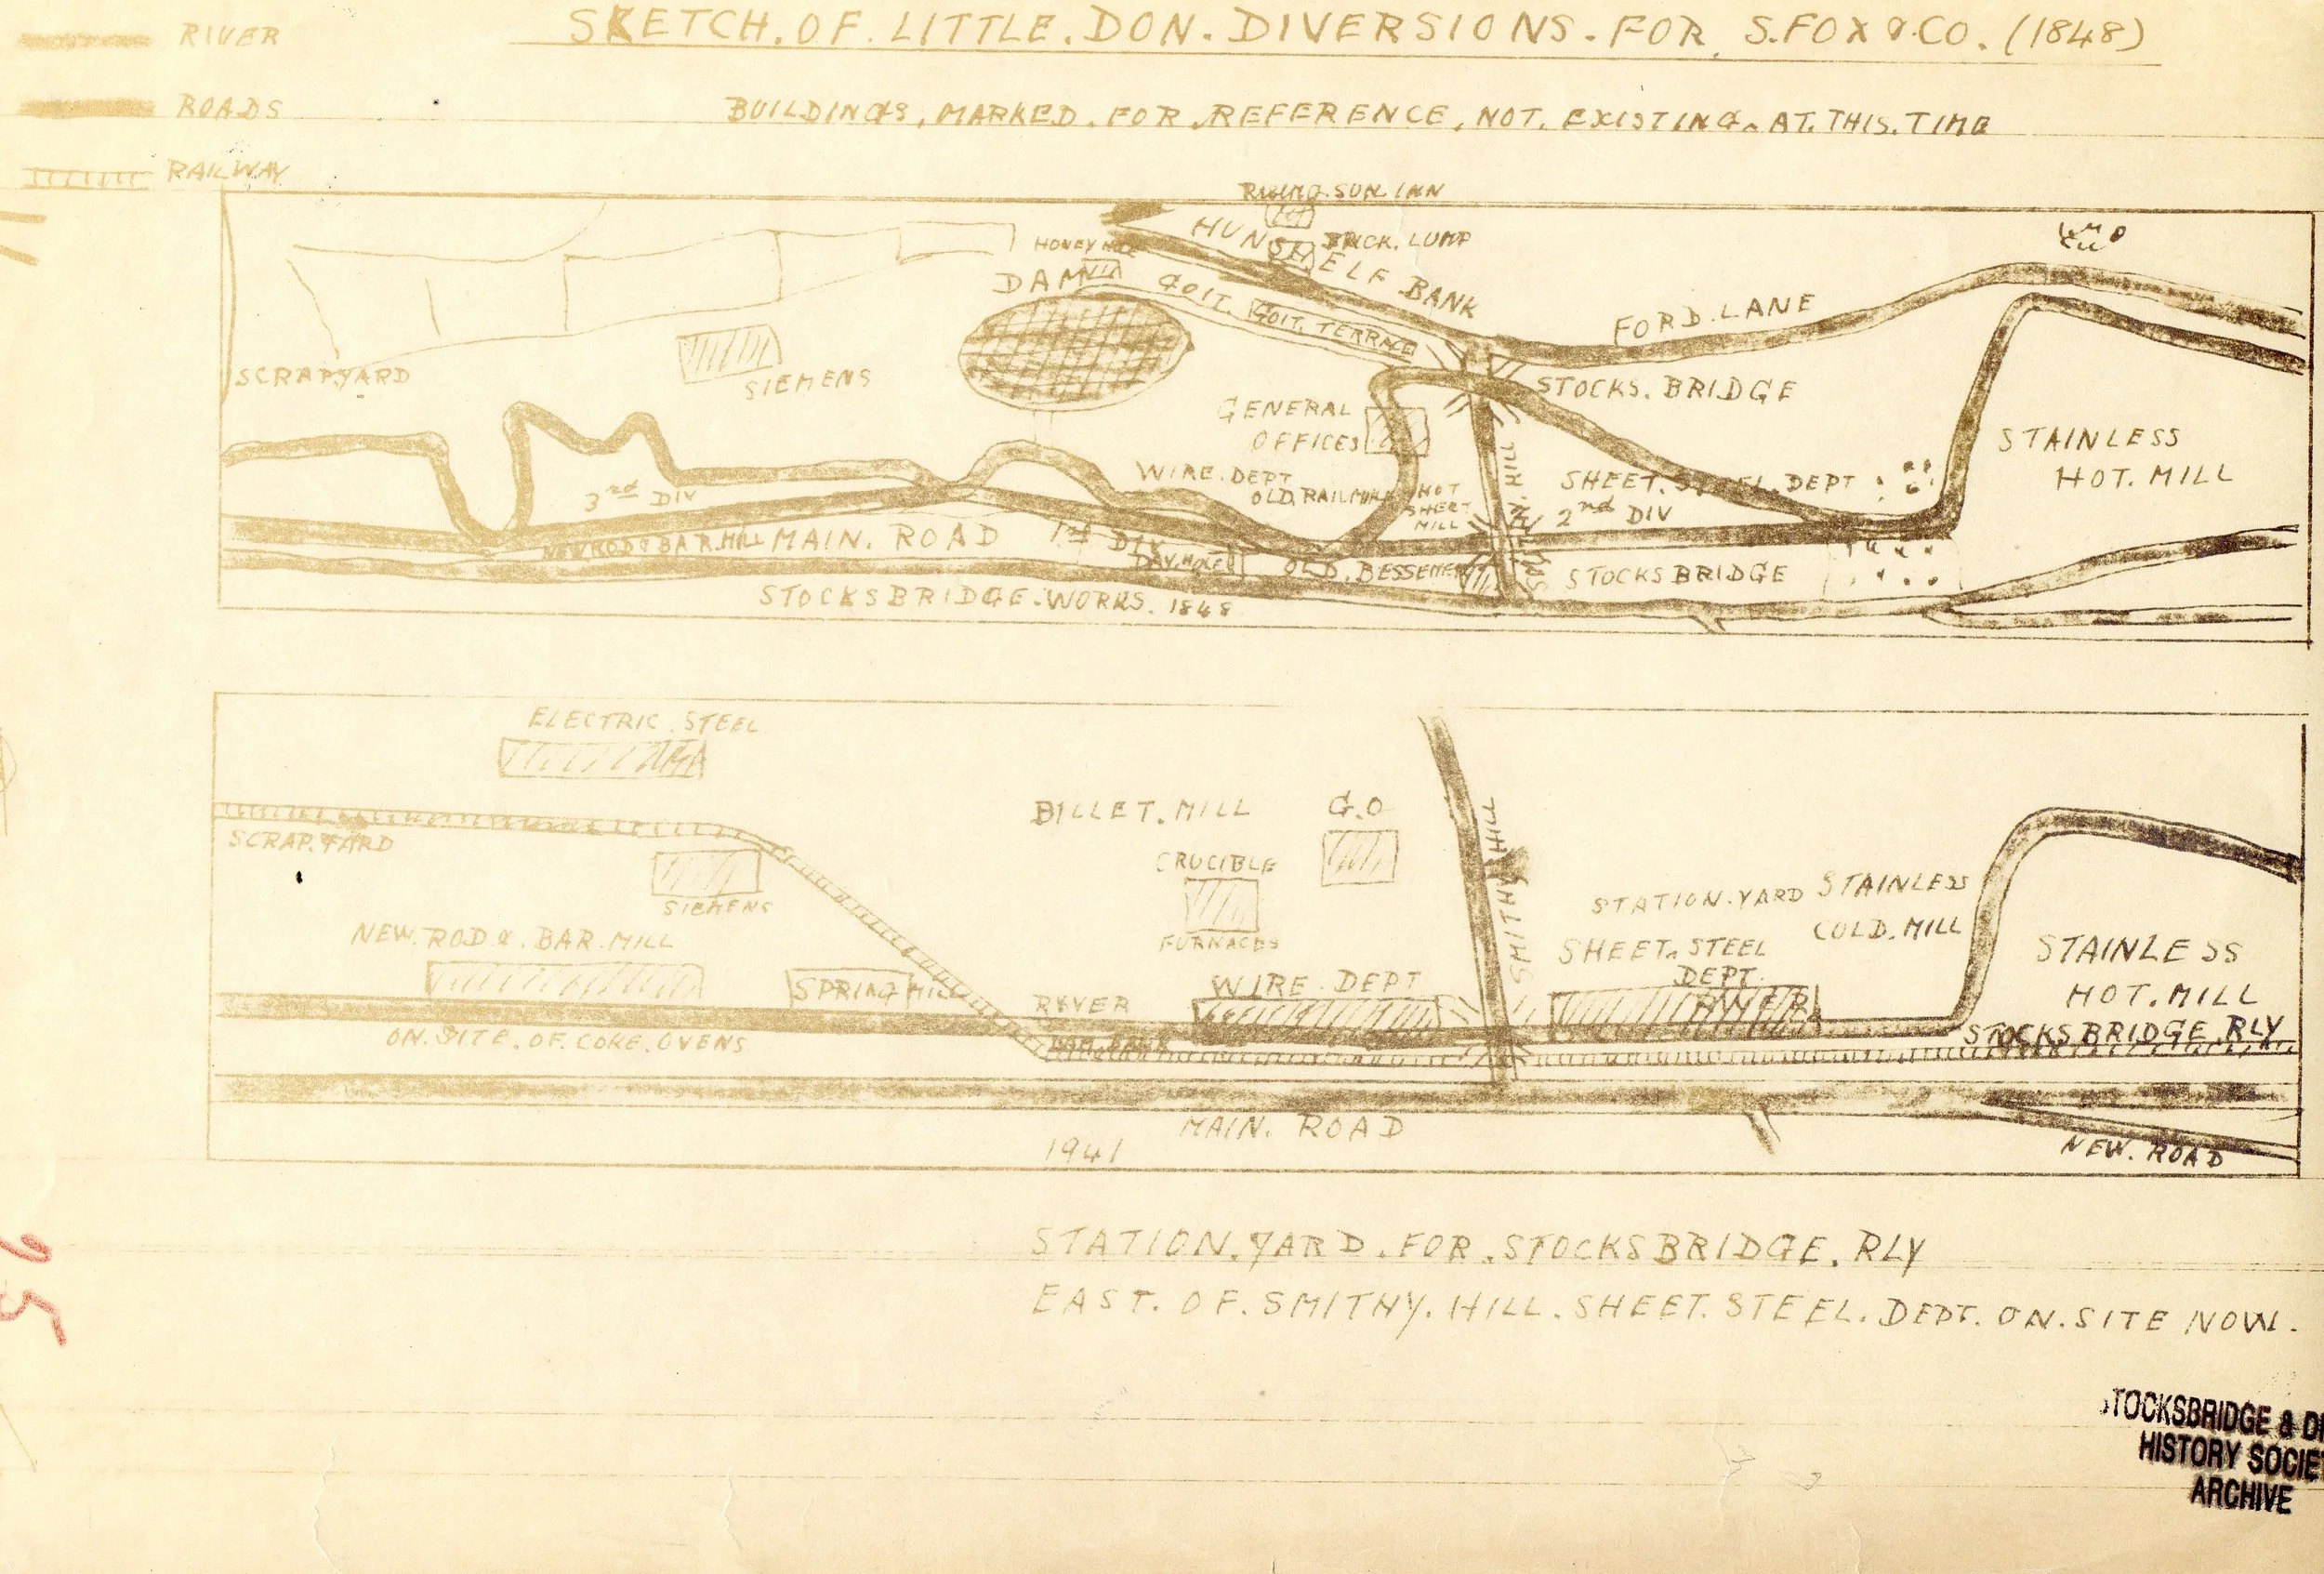 SKETCH. OF. LITTLE. DON. DIVERSIONS. FOR. S. FOX & CO. (1848)
RIVER
ROADS
BUILDINGS, MARKED. FOR. REFERENCE, NOT. EXISTING. AT. THIS. TIME
RAILWAY
RISING. SUN. INN
HUNSHELF BANK
BRICK. LUMP
HONEY
DAM
GOIT.
GOIT. TERRACE
FORD. LANE
SCRAPYARD
SIEMENS
STOCKS. BRIDGE
GENERAL
OFFICES
STAINLESS
HOT. MILL
WIRE. DEPT
OLD. RAILMILL
HOT
SHEET
MILL
SMITHY. HILL
SHEET. STEEL. DEPT
2nd DIV
3rd DIV
NEW ROD & BAR. MILL
MAIN. ROAD
1st DIV
DAY. HOLE
OLD. BESSEMER
STOCKSBRIDGE
STOCKSBRIDGE. WORKS. 1848
ELECTRIC. STEEL
BILLET. MILL
G.O
SCRAP. YARD
SIEMENS
CRUCIBLE
FURNACES
SMITHY HILL
STATION. YARD
STAINLESS
COLD. MILL
NEW. ROD &. BAR. MILL
SHEET. STEEL
DEPT.
STAINLESS
HOT. MILL
SPRING MILL
RIVER
WIRE. DEPT
RIVER
STOCKSBRIDGE. RLY
ON. SITE. OF. COKE. OVENS
MAIN. ROAD
1941
NEW. ROAD
STATION. YARD. FOR. STOCKSBRIDGE. RLY
EAST. OF. SMITHY. HILL. SHEET. STEEL. DEPT. ON. SITE NOW.
95
STOCKSBRIDGE & DI
HISTORY SOCIE
ARCHIVE